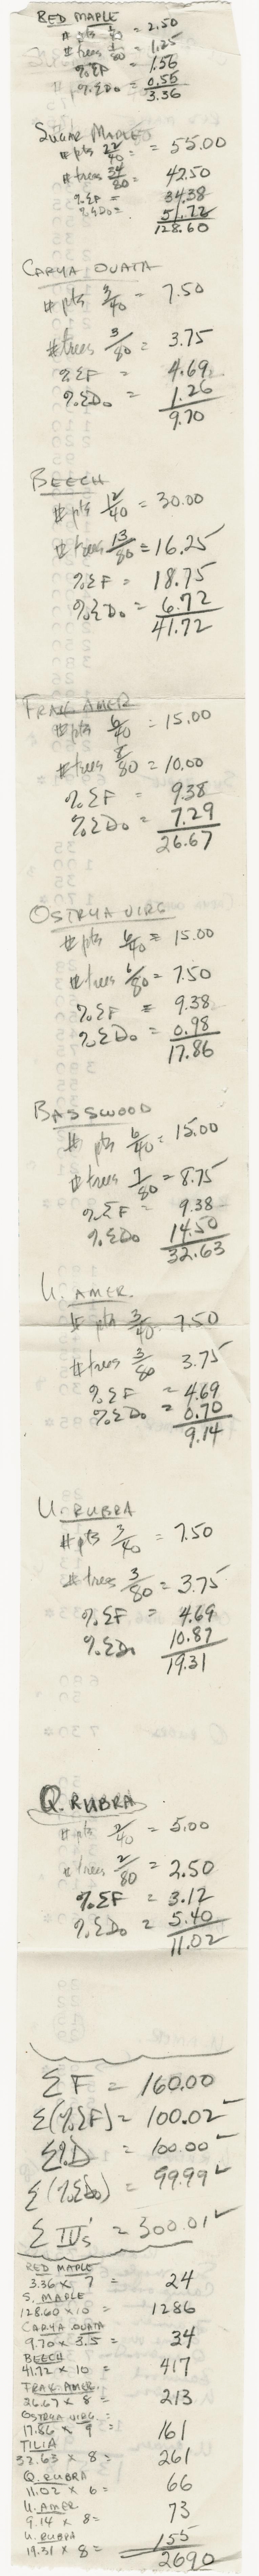 RED MAPLE
# pts 1/40 = 2.50
# trees 1/80 = 1.25
%ΣF = 1.56
%ΣDo = 0.55
3.36
SUGAR MAPLE
# pts 22/40 = 55.00
# trees 34/80 = 42.50
%ΣF = 34.38
%ΣDo = 51.72
128.60
CARYA OVATA
# pts 3/40 = 7.50
# trees 3/80 = 3.75
%ΣF = 4.69
%ΣDo = 1.26
9.70
BEECH
# pts 12/40 = 30.00
# trees 13/80 = 16.25
%ΣF = 18.75
%ΣDo = 6.72
41.72
FRAX AMER
# pts 6/40 = 15.00
# trees 8/80 = 10.00
%ΣF = 9.38
%ΣDo = 7.29
26.67
OSTRYA VIRG
# pts 6/40 = 15.00
# trees 6/80 = 7.50
%ΣF = 9.38
%ΣDo = 0.98
17.86
BASSWOOD
# pts 6/40 = 15.00
# trees 7/80 = 8.75
%ΣF = 9.38
%ΣDo 14.50
32.63
U. AMER.
# pts 3/40 7.50
# trees 3/80 3.75
%ΣF = 4.69
%ΣDo = 0.70
9.14
U. RUBRA
# pts 3/40 = 7.50
# trees 3/80 = 3.75
%ΣF = 4.69
%ΣDo 10.87
19.31
Q. RUBRA
# pts 2/40 = 5.00
# trees 2/80 = 2.50
%ΣF = 3.12
%ΣDo = 5.40
11.02
ΣF = 160.00
Σ(%ΣF) = 100.02 ✓
Σ%D = 100.00 ✓
Σ(%ΣDo) = 99.99 ✓
Σ IV's = 300.01 ✓
RED MAPLE
3.36 x 7 = 24
S. MAPLE
128.60 x 10 = 1286
CARYA OVATA
9.70 x 3.5 = 34
BEECH
41.72 x 10 = 417
FRAX. AMER.
26.67 x 8 = 213
OSTRYA VIRG.
17.86 x 9 = 161
TILIA
32.63 x 8 = 261
Q. RUBRA
11.02 x 6 = 66
U. AMER
9.14 x 8 = 73
U. RUBRA
19.31 x 8 = 155
2690